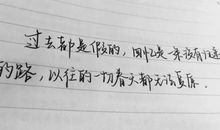 过去都是假的，回忆是一条没有归途
的路，以往的一切春天都无法复原